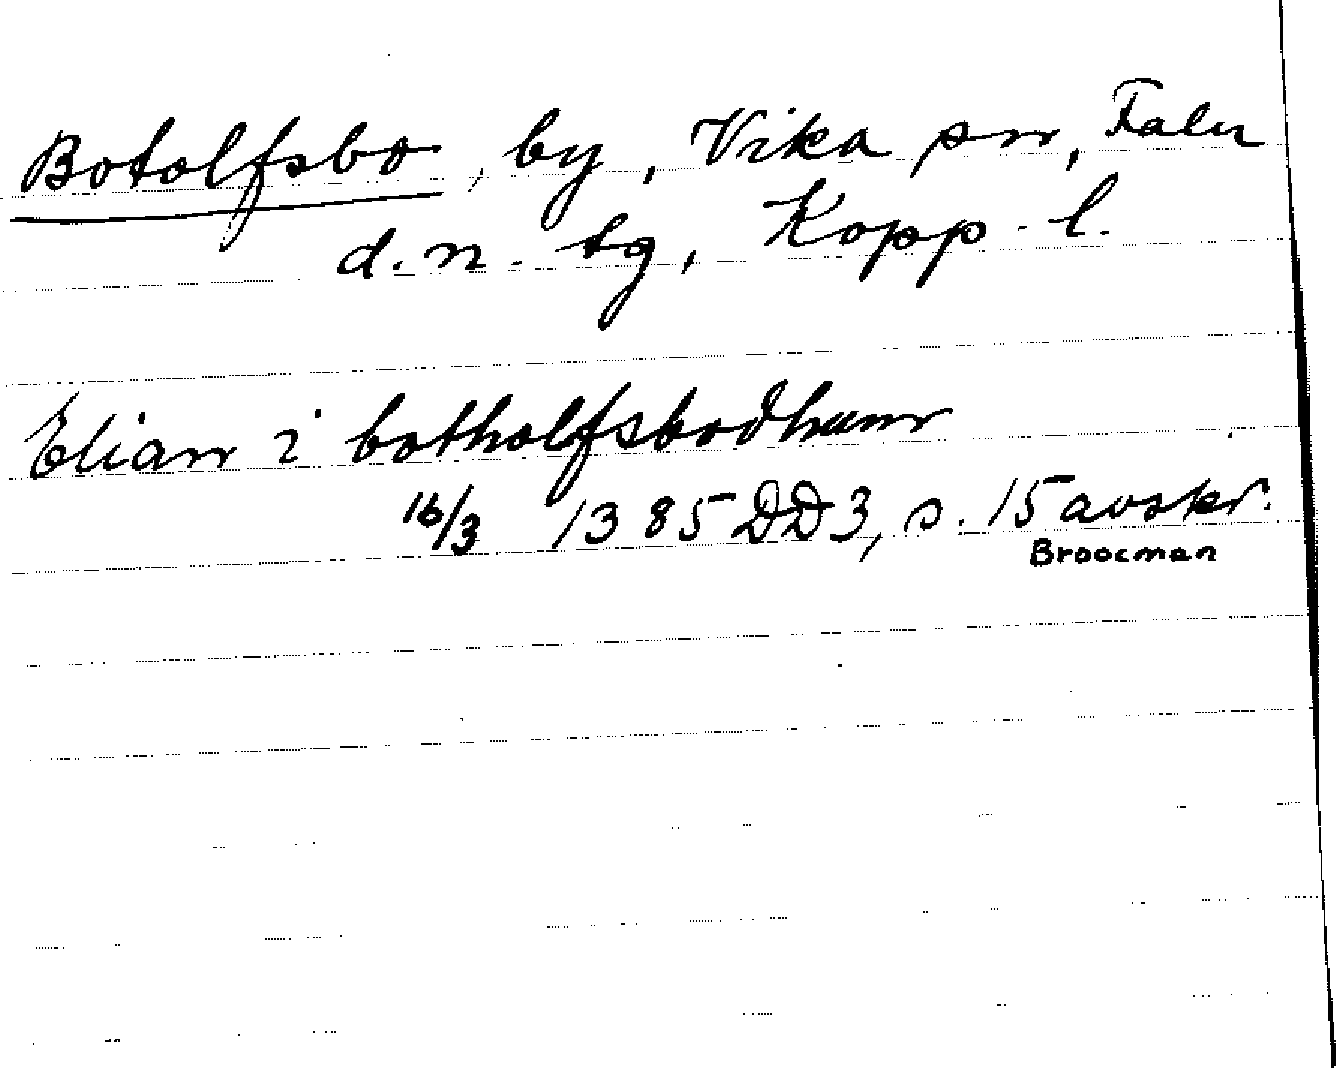 Botolfsbo, by, Vika sn, Falu
d.n. tg, Kopp. l.
Elian i botholfsbodhum
16/3 1385 DD3, s. 15 avskr.
Broocman